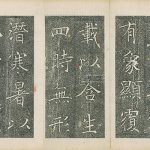 有象顯覆
載以含生
四時無形
潛寒暑以